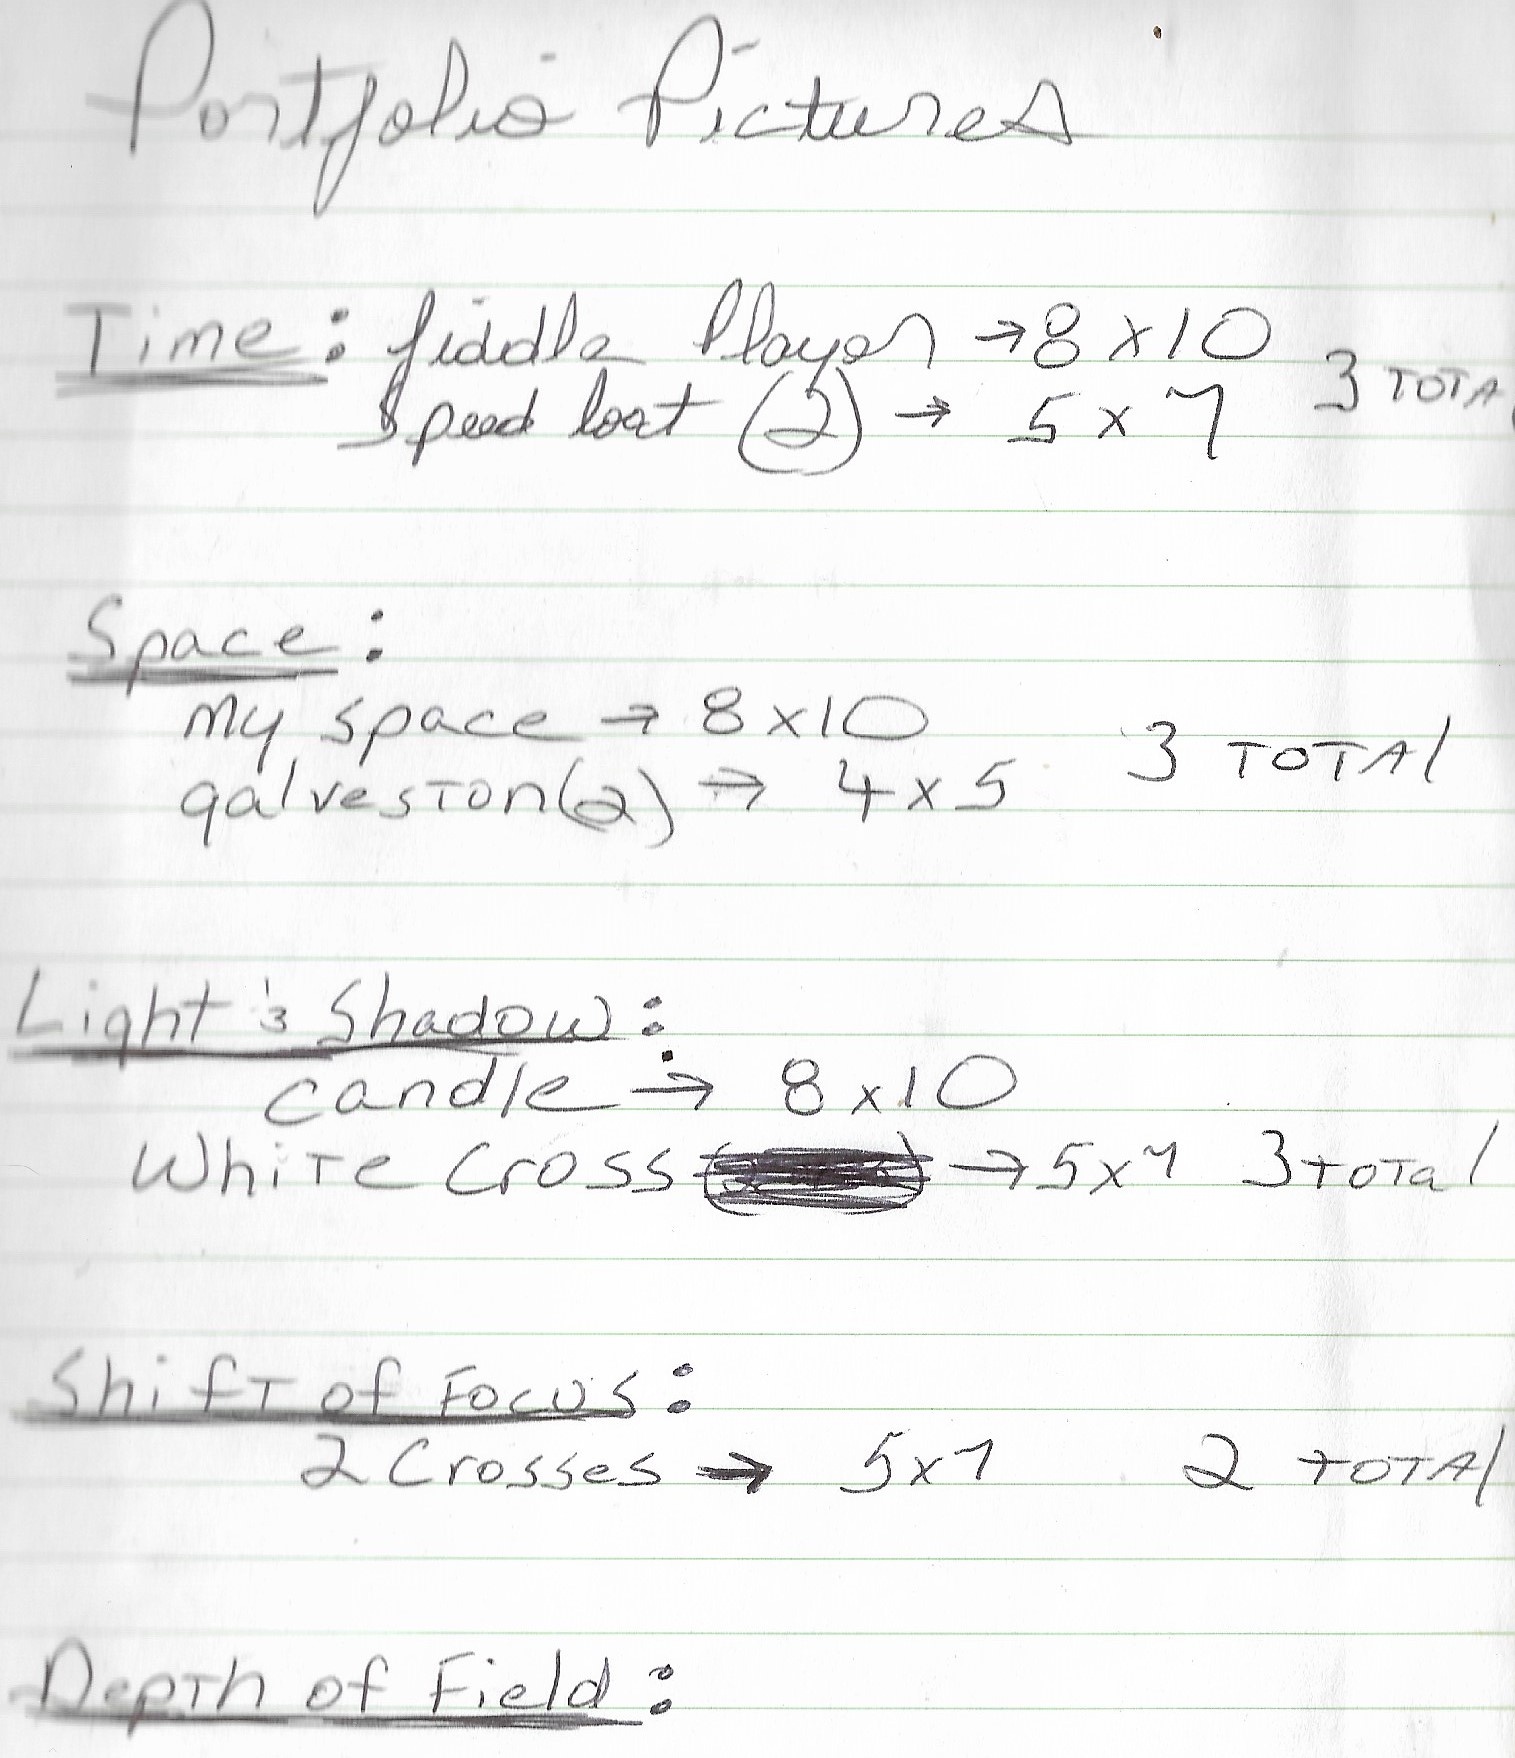 Portfolio Pictures
Time: fiddle Player → 8 x 10
Speed boat (2) → 5 x 7 3 TOTA
Space:
my space → 8 x 10
galveston (2) → 4 x 5 3 TOTAl
Light & Shadow:
candle → 8 x 10
White Cross → 5x7 3 total
Shift of Focus:
2 Crosses → 5x7 2 TOTAl
Depth of Field: